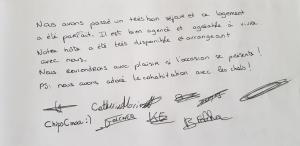 Nous avons passé un très bon séjour et ce logement
a été parfait. Il est bien agencé et agréable à vivre
Notre hôte a été très disponible et arrangeant
avec nous.
Nous reviendrons avec plaisir si l'occasion se présente !
PS: nous avons adoré la cohabitation avec les chats !